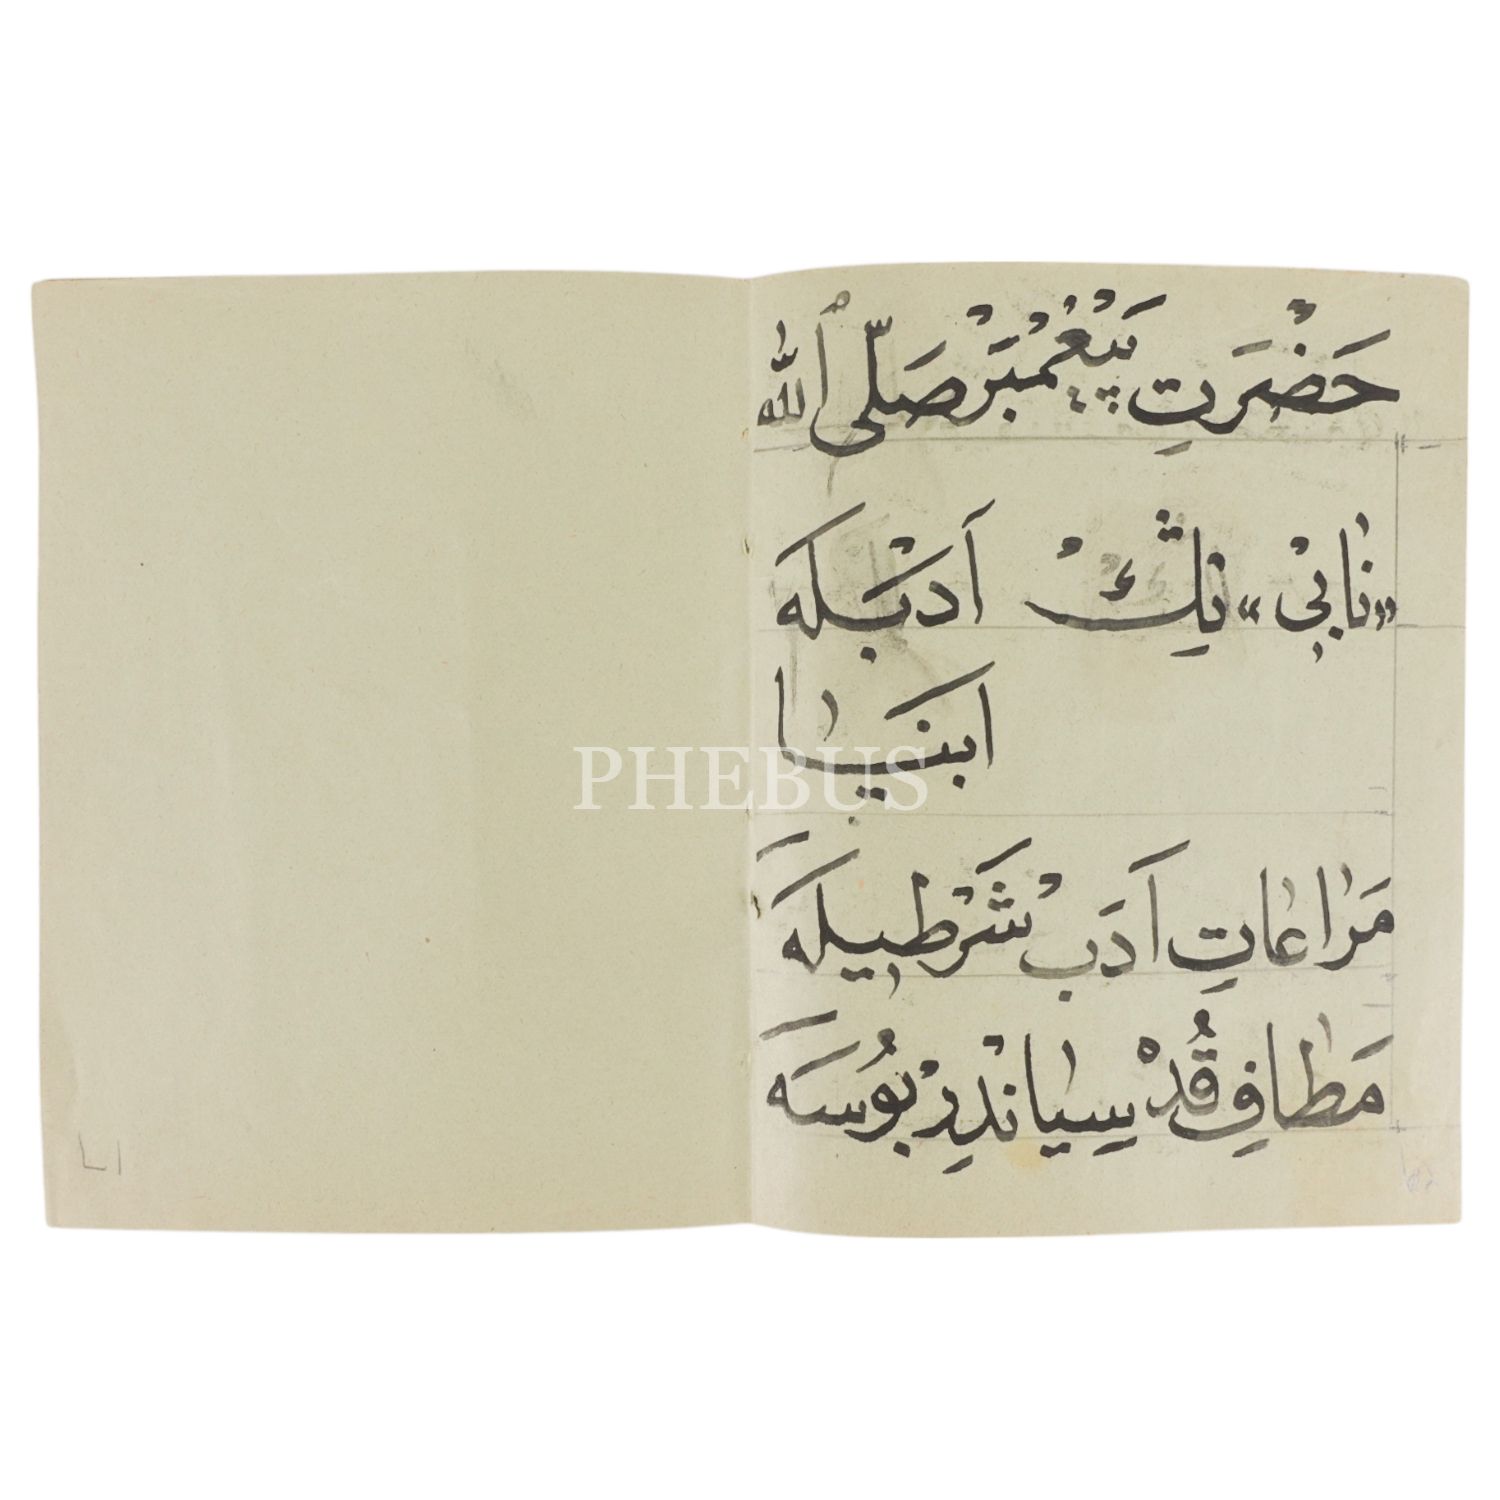 حَضْرَتِ پَيْغَمْبَرْ صَلّٰى ٱللّٰه
«نَابِى» نِڭْ اَدَبْلَه
ابنيا
مَرَاعَاتِ اَدَبْ شَرْطِيلَه
مَطَافِ قُدْسِيَانْدِرْ بُوسَه
PHEBUS